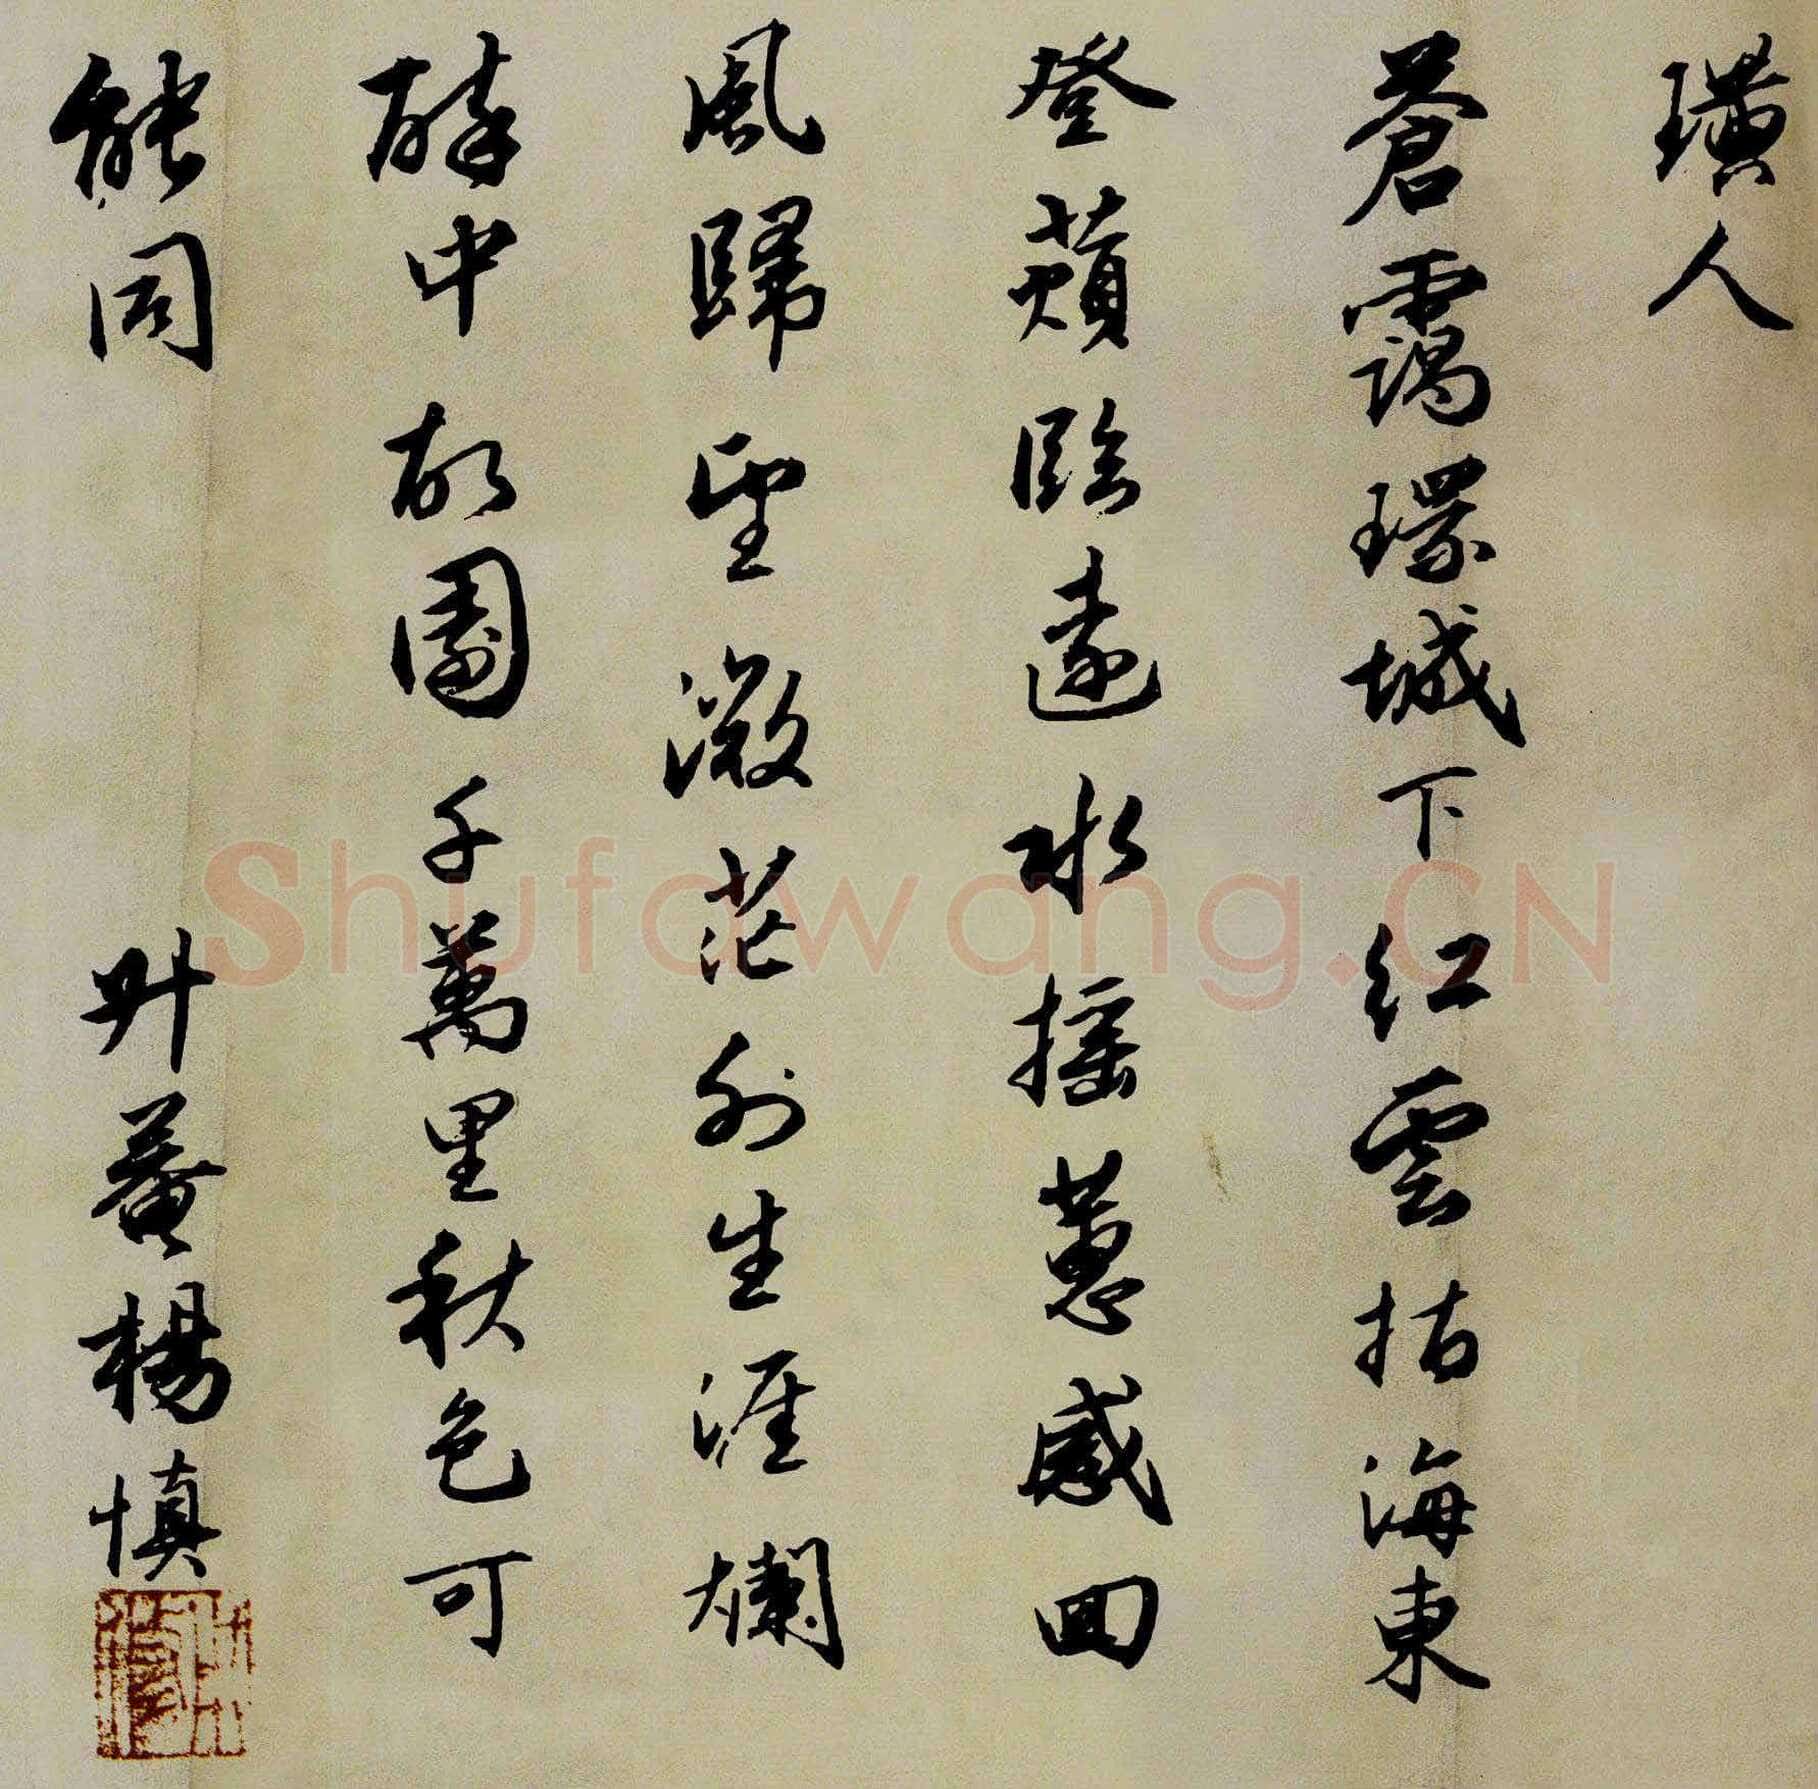 璜人
蒼靄環城下紅雲指海東
登蘋臨遠水摇蕙感回
風歸望微茫外生涯爛
醉中故園千萬里秋色可
能同
升菴楊慎
Shufawang.CN